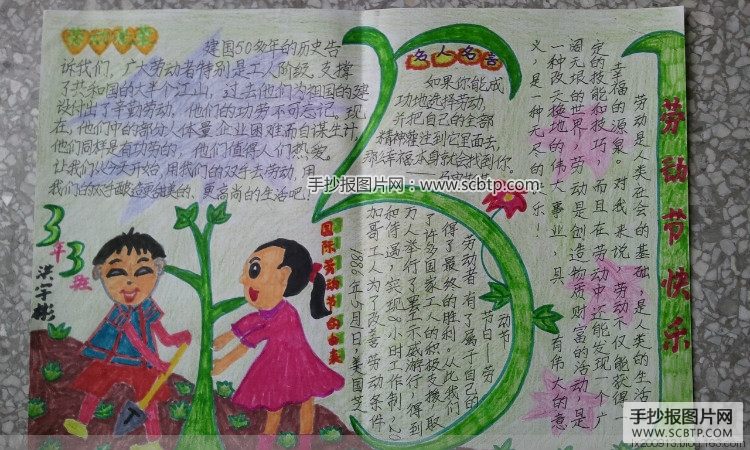 建国50多年的历史告
诉我们,广大劳动者特别是工人阶级,支撑
了共和国的大半个江山,过去他们为祖国的建
设付出了辛勤劳动,他们的功劳不可忘记。现
在,他们中的部分人体量企业困难而自谋生计,
他们同样是有功劳的,他们值得人们热爱。
让我们从今天开始,用我们的双手去劳动,用
我们的双手酿造更甜美的、更高尚的生活吧!
3年3班
洪宇彬
名人名言
如果你能成
功地选择劳动,
并把自己的全部
精神灌注到它里面去,
那么幸福本身就会找到你。
手抄报图片网:www.scbtp.com
51
国际劳动节的由来
1886年5月1日,美国芝
加哥工人为了改善劳动条件
和待遇,实现8小时工作制,20
万人举行了罢工示威游行,得到
了许多国家工人的积极支援,取
得了最终的胜利。从此我们
劳动者有了属于自己的
节日——劳
动节
劳动节快乐
劳动是人类社会的基础,是人类的生活
幸福的源泉。对我来说,劳动不仅能获得一
定的技能和技巧,而且在劳动中还能发现一个广
阔无垠的世界,劳动是创造物质财富的活动,是
一种改天换地的伟大事业,具有伟大的意
义,是一种无尽的快乐!
手抄报图片网
www.scbtp.com